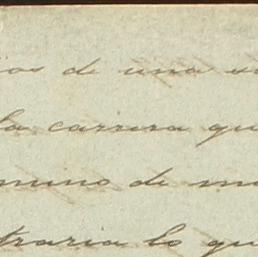 ios de una
la carrera qu
mino de
traria lo qu